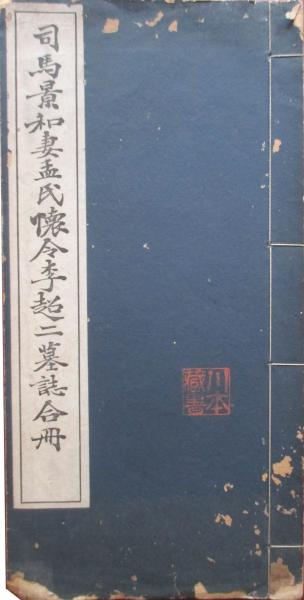 司馬景和妻孟氏懷令李超二墓誌合冊
川本
藏書